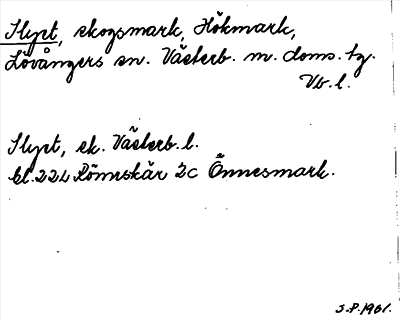 Slypt, skogsmark, Hökmark,
Lövångers sn. Västerb. m. doms. tg.
Vb. l.
Slypt, sk. Västerb. l.
bl. 22L Rönnskär 2c Önnesmark.
S.P. 1961.